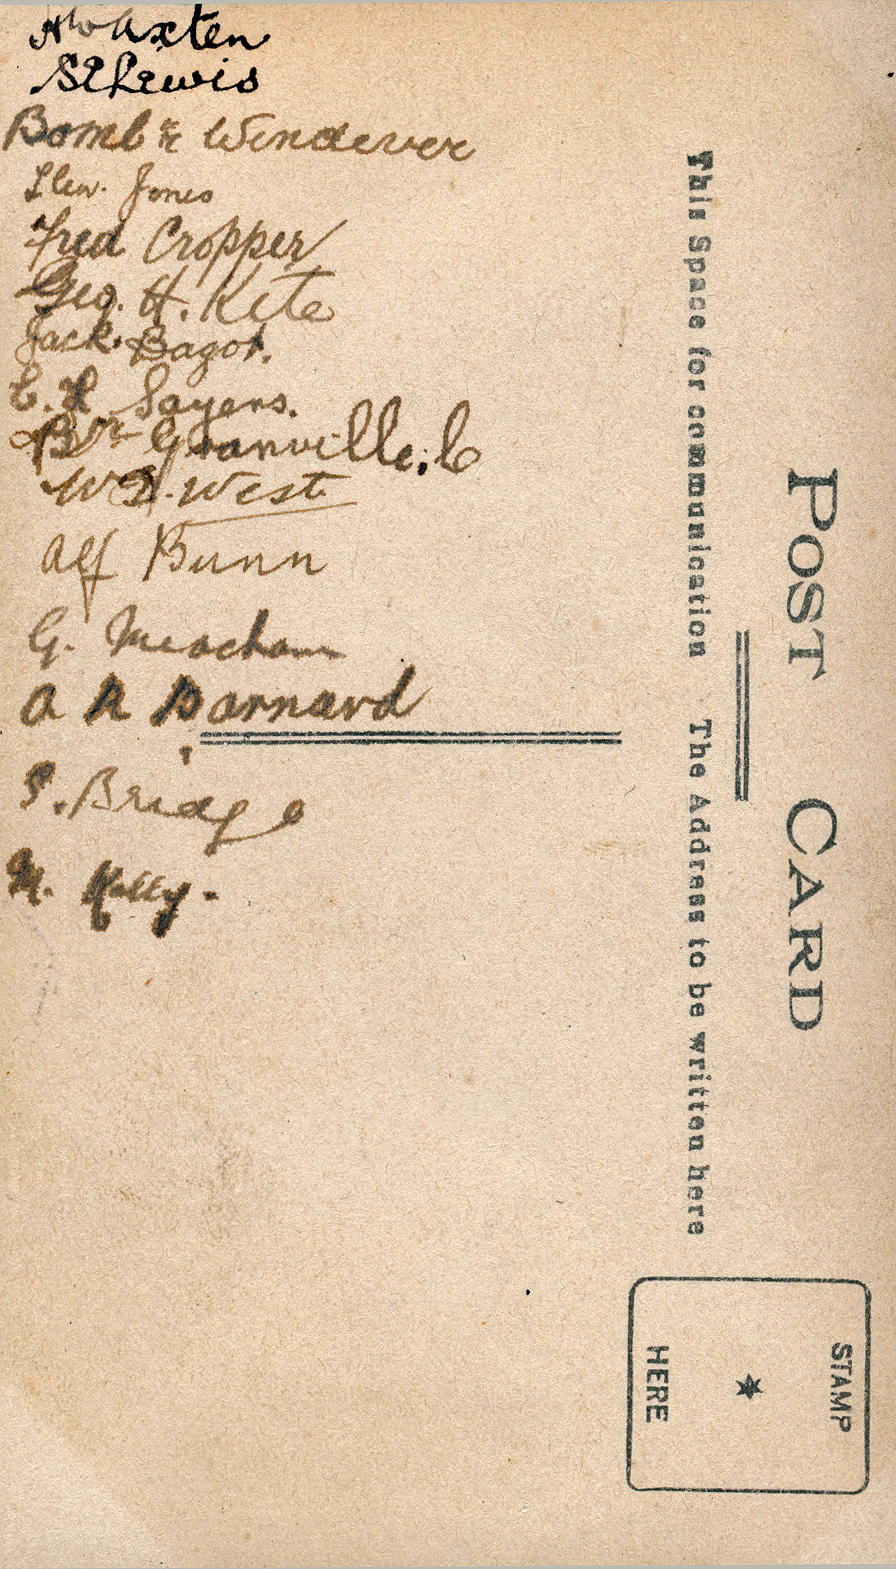 Axten
S E Lewis
Bombr Windever
Llew. Jones
Fred Cropper
Geo. H. Kete
Jack. Bagot.
C. H. Sayers.
Br Granville. C
W D. West
Alf Bunn
G. Meacham
A R Barnard
S. Bridge
M. Kelly.
POST CARD
This Space for communication The Address to be written here
STAMP
HERE